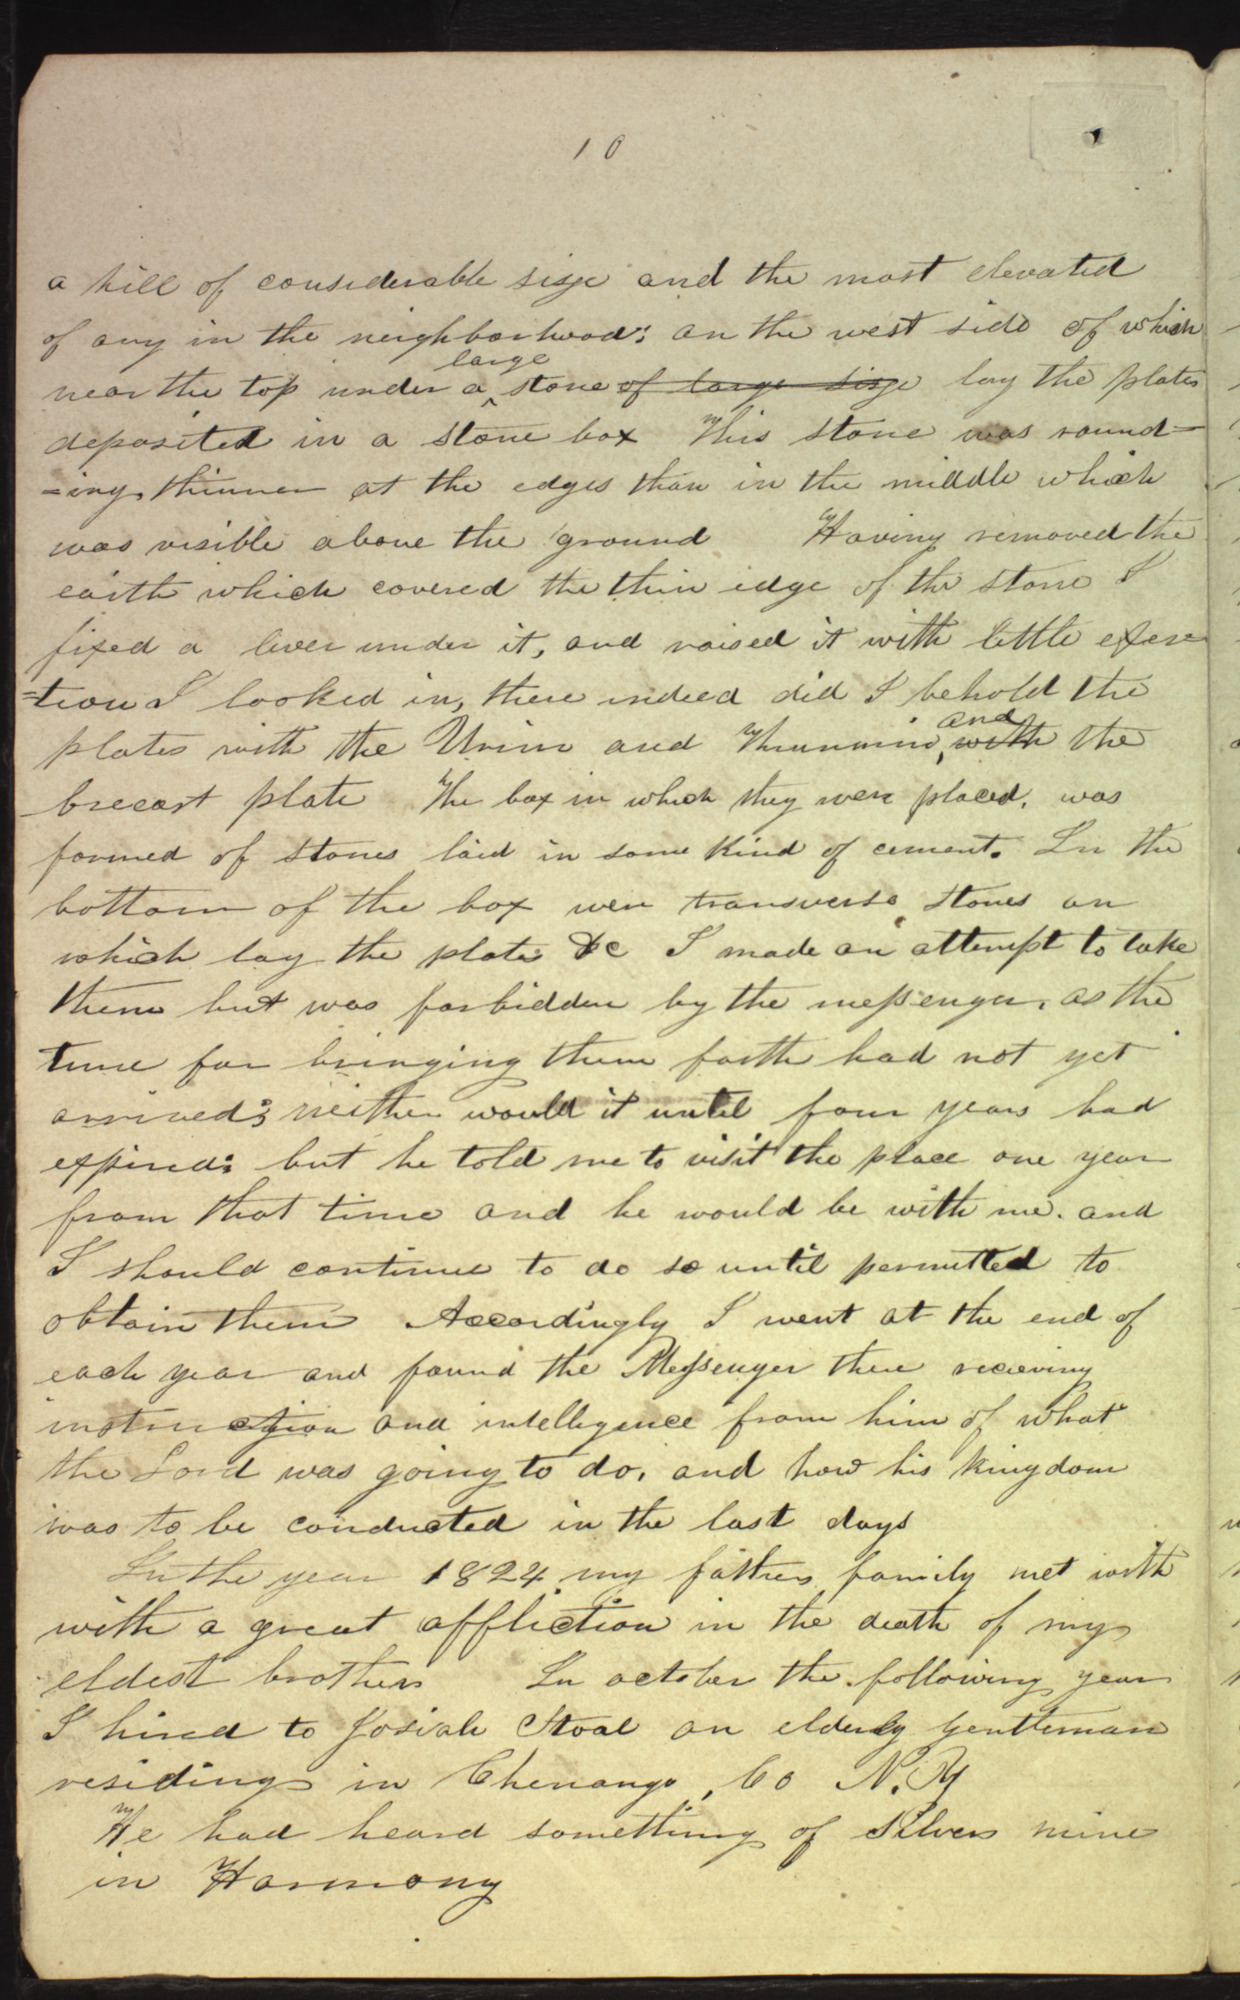 10
a hill of considerable size and the most elevated
of any in the neighborhood; on the west side of which
large
near the top under a ‸ stone of large size lay the plates
deposited in a stone box This stone was round=
=ing, thinner at the edges than in the middle which
was visible above the ground Having removed the
earth which covered the thin edge of the stone I
fixed a lever under it, and raised it with little exer
=tion I looked in, there indeed did I behold the
and
plates with the Urim and Thummim, with the
breast plate The box in which they were placed, was
formed of stones laid in some kind of cement. In the
bottom of the box were transverse stones on
which lay the plates &c I made an attempt to take
them but was forbidden by the messenger, as the
time for bringing them forth had not yet
arrived; neither would it until four years had
expired: but he told me to visit the place one year
from that time and he would be with me. and
I should continue to do so until permitted to
obtain them Accordingly I went at the end of
each year and found the Messenger there recieving
instruction and intelligence from him of what
the Lord was going to do, and how his kingdom
was to be conducted in the last days
In the year 1824 my fathers family met with
with a great affliction in the death of my
eldest brother In october the following year
I hired to Josiah Stoal an elderly gentleman
residing in Chenango, Co N.Y
He had heard something of Silver mine
in Harmony